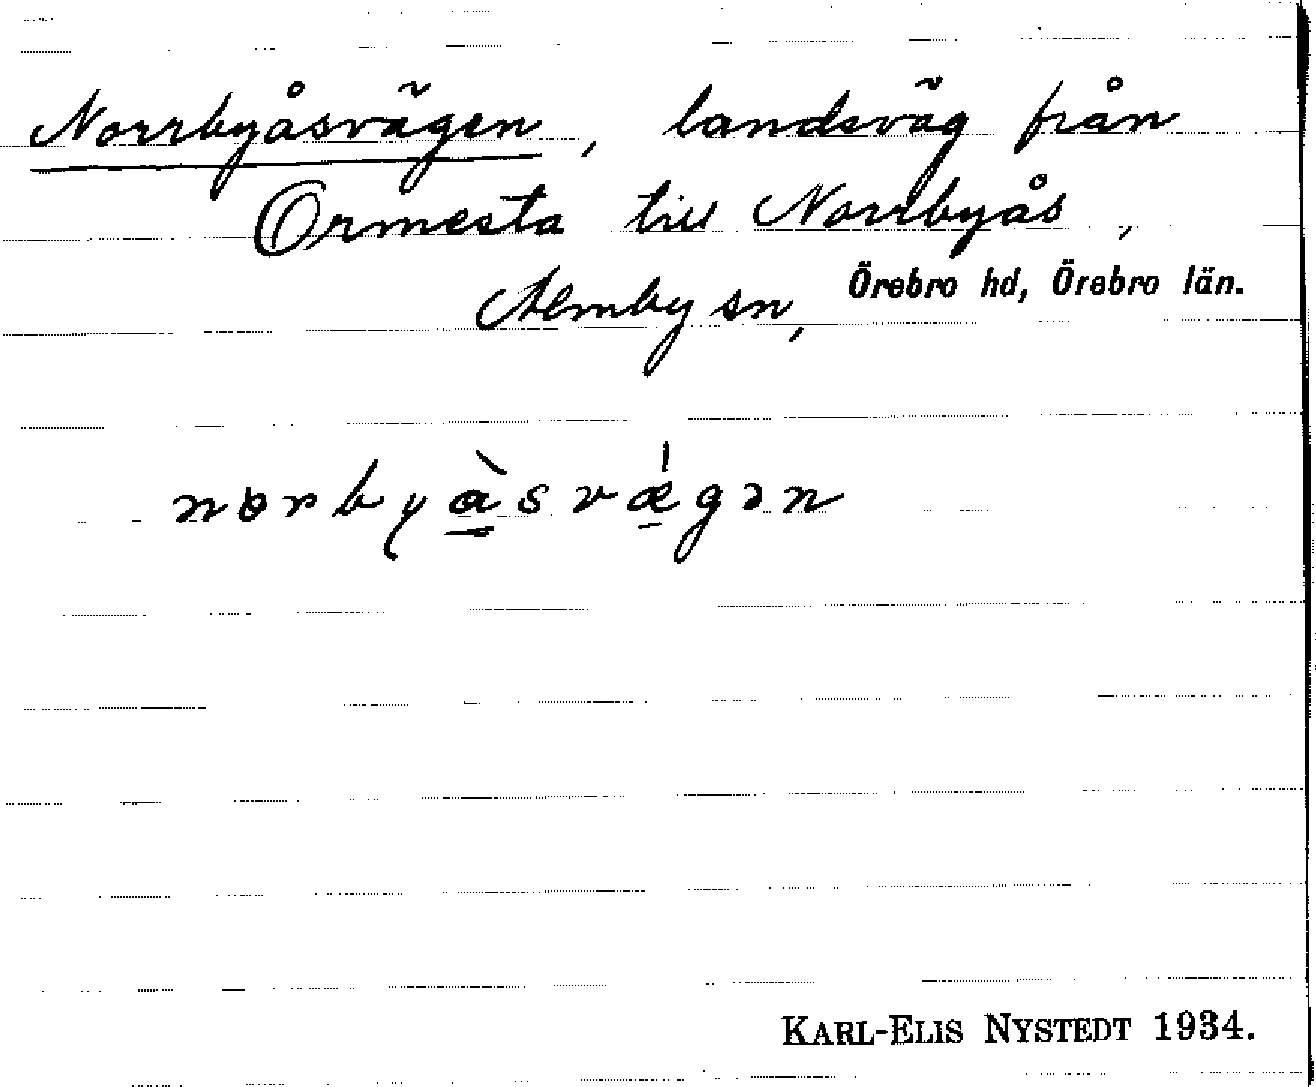 Norrbyåsvägen, landsväg från
Ormesta till Norrbyås,
Almby sn, Örebro hd, Örebro län.
nơrbyà̱svǽ̱gən
KARL-ELIS NYSTEDT 1934.